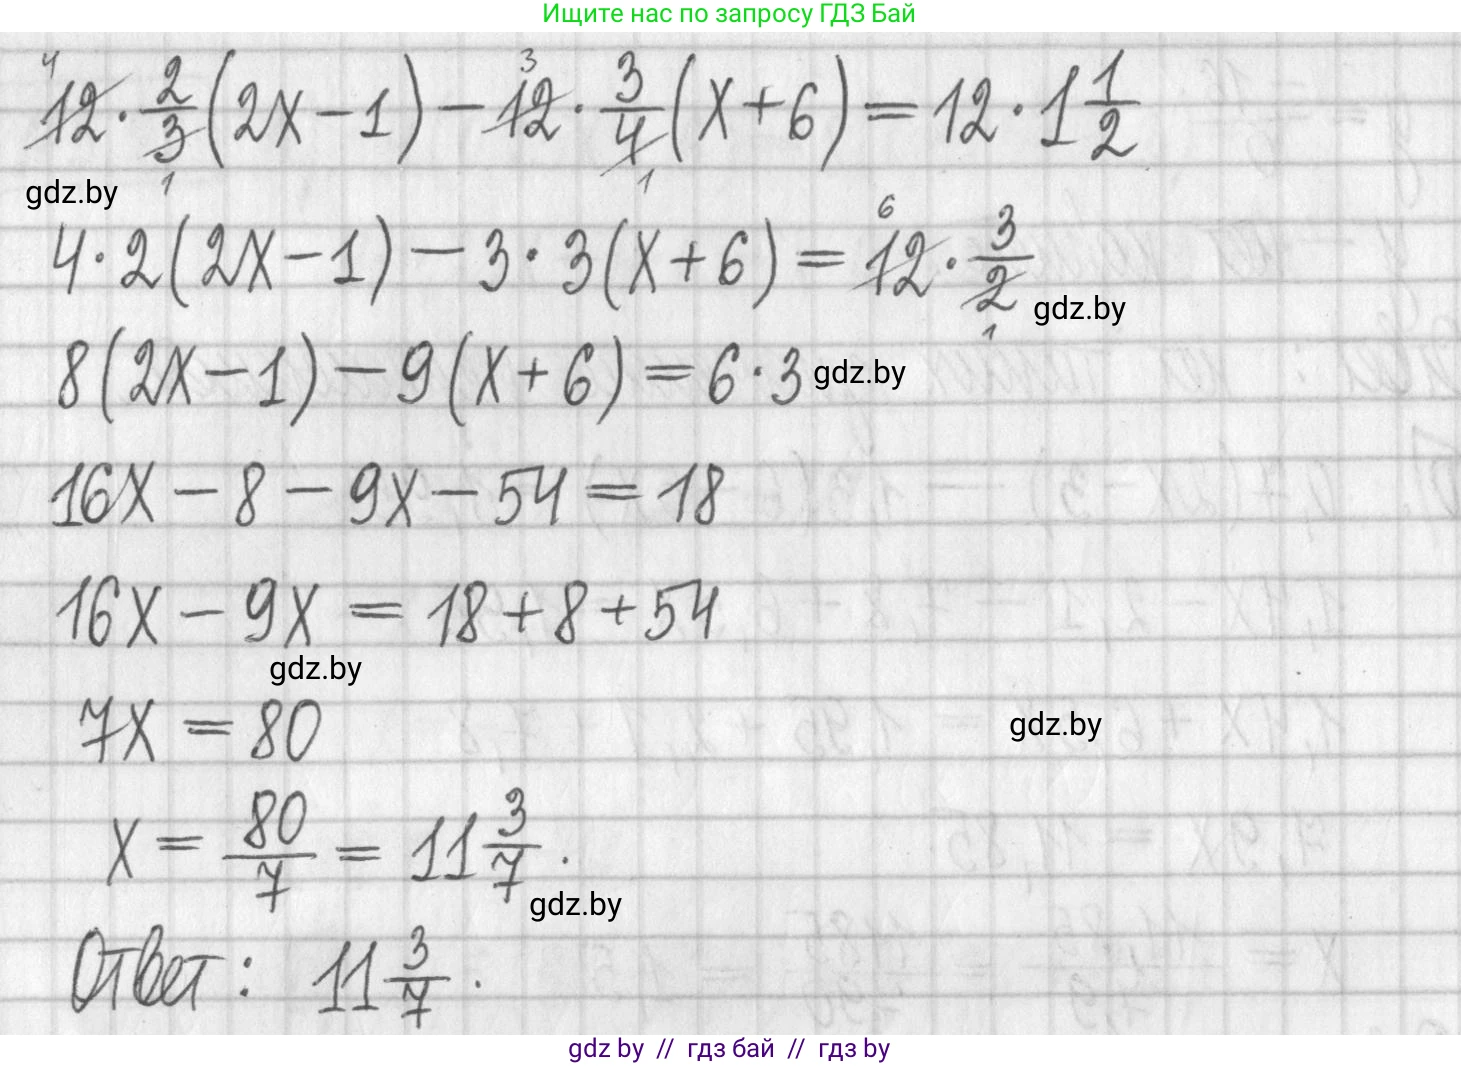 Ищите нас по запросу ГДЗ Бай
12 · 2/3 (2x − 1) − 12 · 3/4 (x + 6) = 12 · 1 1/2
gdz.by
4 · 2 (2x − 1) − 3 · 3 (x + 6) = 12 · 3/2
gdz.by
8 (2x − 1) − 9 (x + 6) = 6 · 3
gdz.by
16x − 8 − 9x − 54 = 18
16x − 9x = 18 + 8 + 54
gdz.by
7x = 80
gdz.by
x = 80/7 = 11 3/7.
gdz.by
Ответ: 11 3/7.
gdz by // гдз бай // гдз by